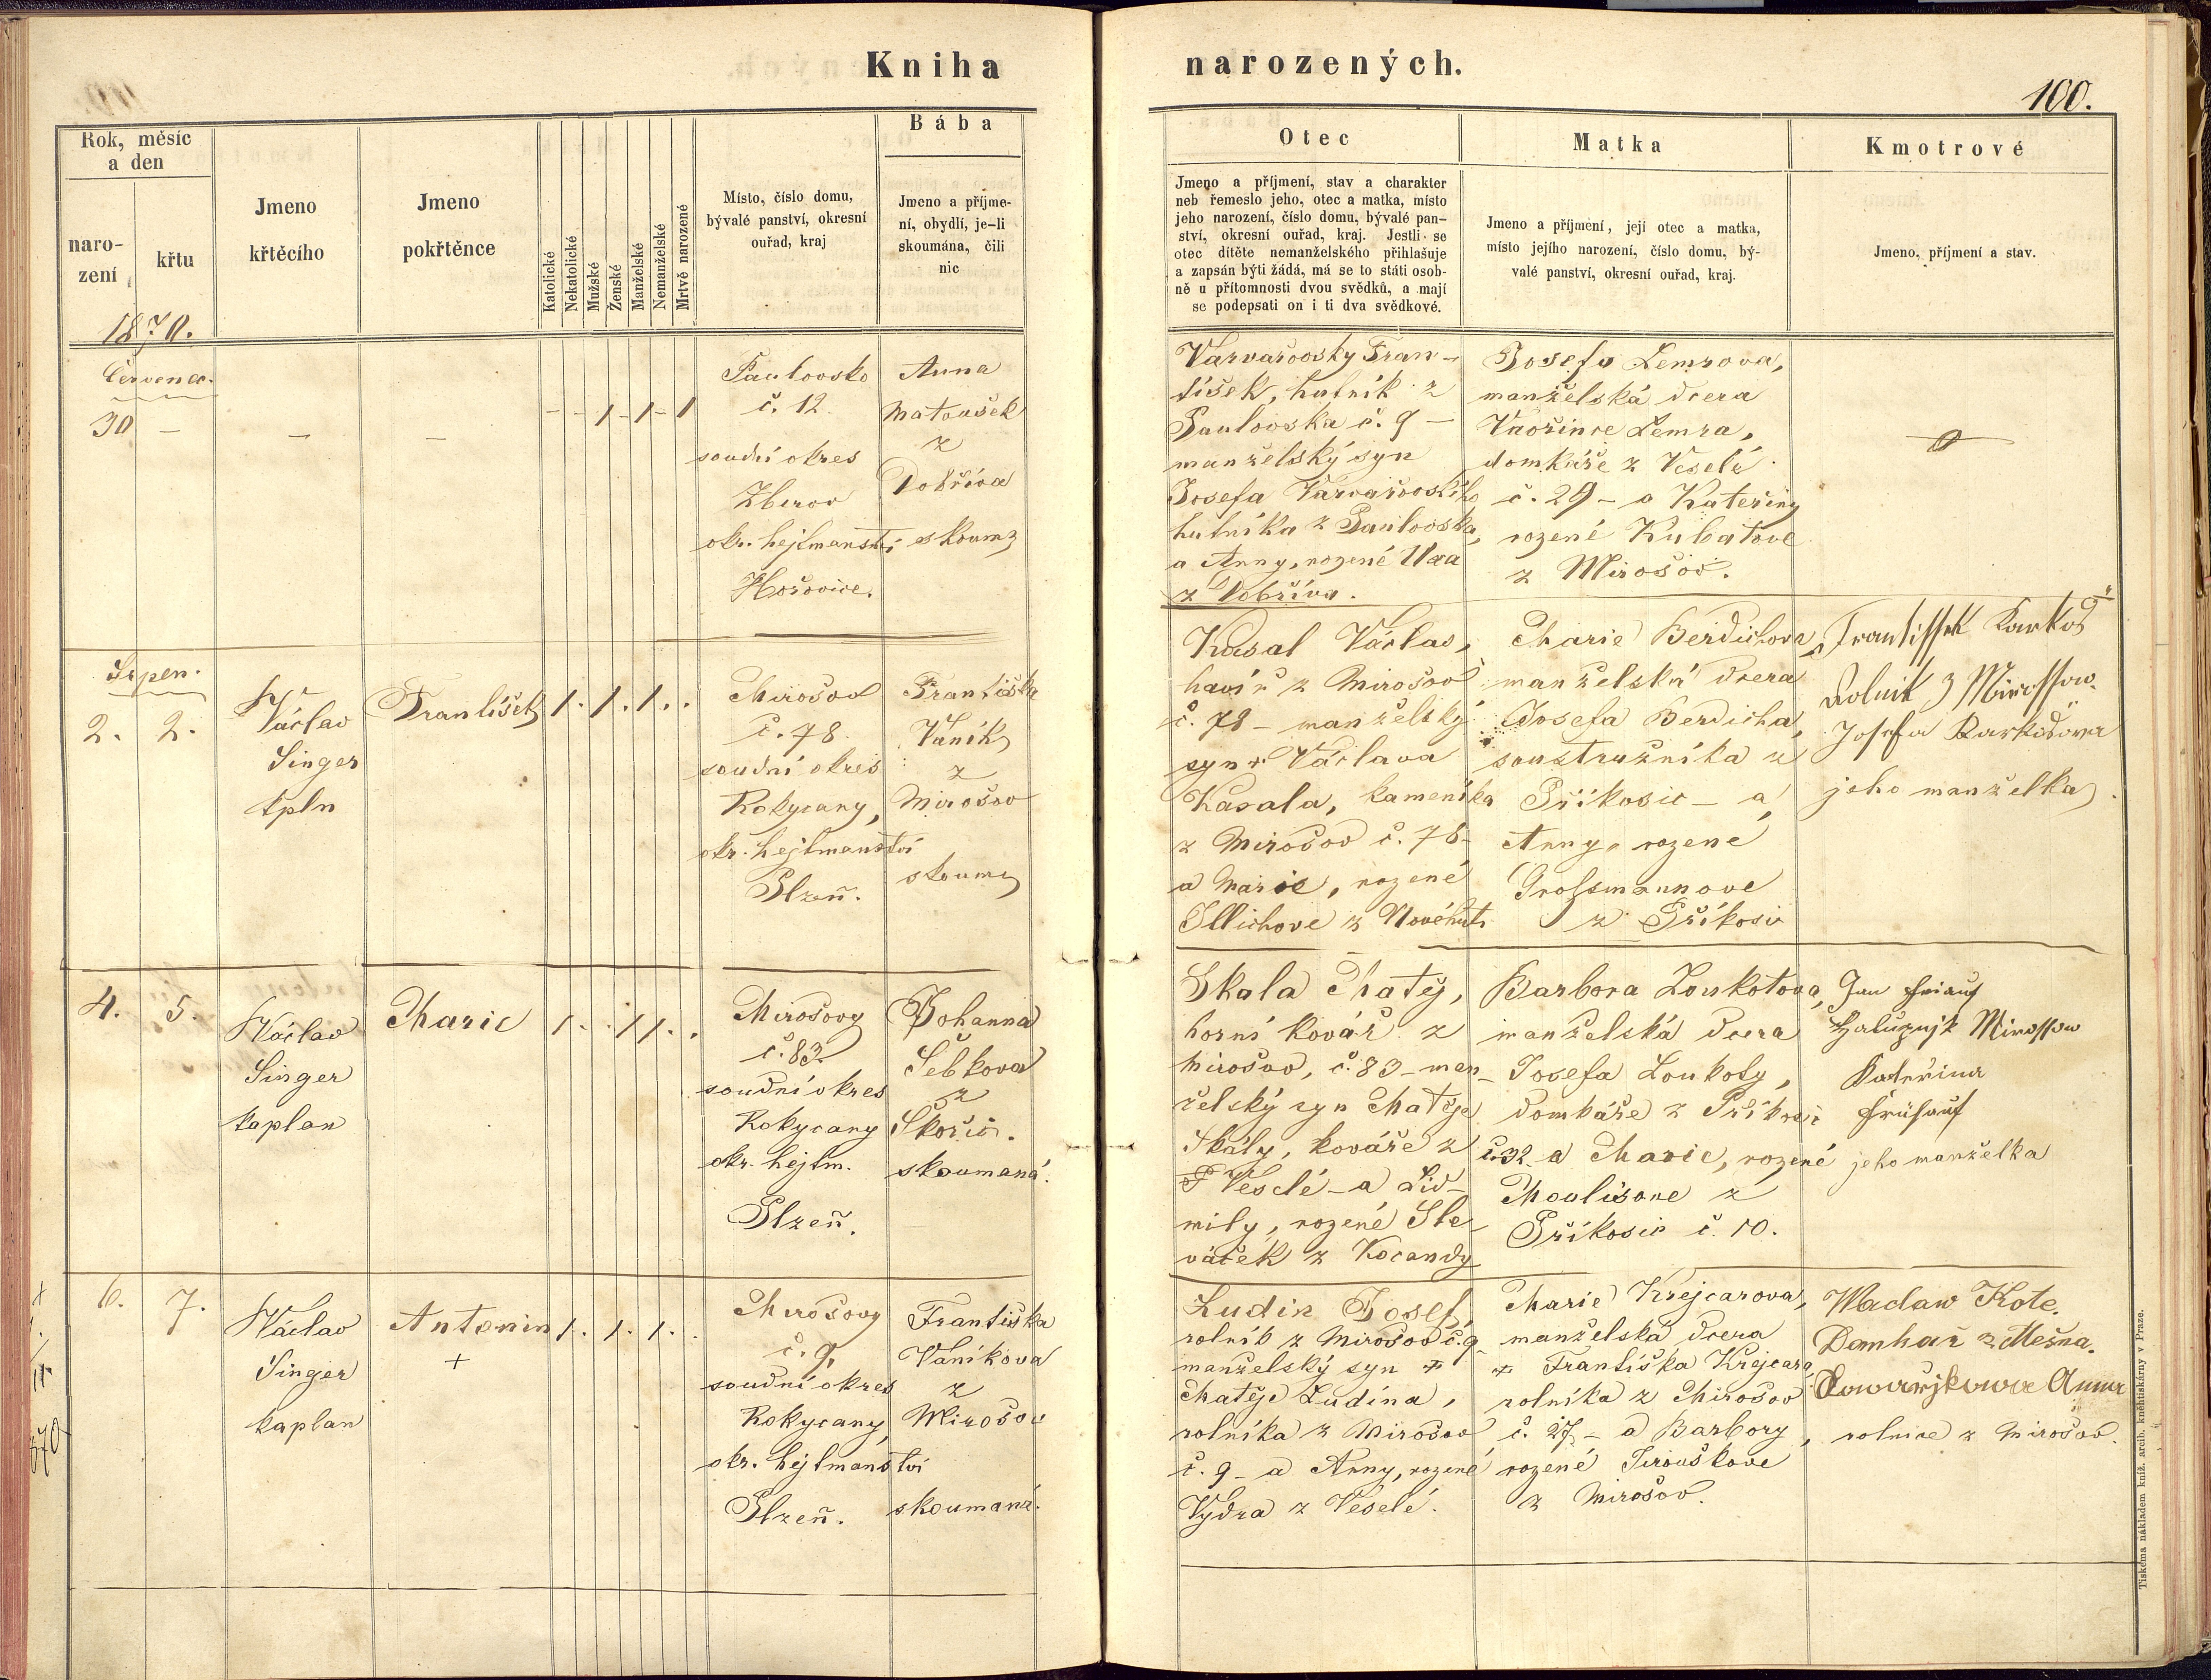 Kniha
narozených.
100.
Rok, měsíc
a den
naro-
zení
křtu
Jmeno
křtěcího
Jmeno
pokřtěnce
Katolické
Nekatolické
Mužské
Ženské
Manželské
Nemanželské
Mrtvě narozené
Místo, číslo domu,
bývalé panství, okresní
ouřad, kraj
Bába
Jmeno a příjme-
ní, obydlí, je-li
skoumána, čili
nic
Otec
Jmeno a příjmení, stav a charakter
neb řemeslo jeho, otec a matka, místo
jeho narození, číslo domu, bývalé pan-
ství, okresní ouřad, kraj. Jestli se
otec dítěte nemanželského přihlašuje
a zapsán býti žádá, má se to státi osob-
ně u přítomnosti dvou svědků, a mají
se podepsati on i ti dva svědkové.
Matka
Jmeno a příjmení, její otec a matka,
místo jejího narození, číslo domu, bý-
valé panství, okresní ouřad, kraj.
Kmotrové
Jmeno, příjmení a stav.
1870.
Červenec.
30 — — —
- - 1 - 1 - 1
Paulovsko
č. 12.
soudní okres
Zberov
okr. hejtmanství
Hořovice.
Anna
Matoušek
z
Dobříva
skoum
Varvařovský Fran-
tíšek, hutník z
Paulovska č. 9 —
manželský syn
Josefa Varvařovského
hutníka z Paulovska,
a Anny, rozené
z Dobříva.
Josefa Lemrova,
manželská dcera
Vavřince Lemra,
domkáře z Veselé
č. 29 - a Kateřiny
rozené Kubatove
z Mirošov.
Srpen.
2. 2.
Václav
Singer
kpln
František
1. 1. 1. .
Mirošov
č. 78.
soudní okres
Rokycany,
okr. hejtmanství
Plzeň.
Františka
Vaník
z
Mirošov
skoum
Kasal Václav,
havíř z Mirošov
č. 78 - manželský
syn + Václava
Kasala, kameníka
z Mirošov č. 78 -
a Marie, rozené
Illichove z Novéhuti
Marie Berdichova,
manželská dcera
Josefa Berdicha,
soustružníka z
Příkosic - a
Anny, rozené
Grossmannove
z Příkosic
Frantissek Karkoš
Rolnik z Mirossow.
Josefa Karkošowa
jeho manželka
4. 5.
Václav
Singer
kaplan
Marie
1. . 1 1. .
Mirošovy
č. 83.
soudní okres
Rokycany
okr. hejtm.
Plzeň.
Johanna
Šebkova
z
Skořic.
skoumaná.
Skala Matěj,
horní kovář z
Mirošov, č. 83 - man-
želský syn Matěje
Skály, kováře z
Veselé - a Lid-
mily, rozené Sle-
váček z Kocandy
Barbora Loukotova,
manželská dcera
Josefa Loukoty,
domkáře z Příkosic
č. 32 - a Marie, rozené
Moulisove z
Příkosic č. 10.
Jan
Mirossow
Kateřina
jeho manželka
6. 7.
Václav
Singer
kaplan
Antonin
+
1. 1. 1. .
Mirošovy
č. 9.
soudní okres
Rokycany,
okr. hejtmanství
Plzeň.
Františka
Vaníkova
z
Mirošov
skoumaná.
Ludin Josef,
rolník z Mirošov č. 9
manželský syn +
Matěje Ludina,
rolníka z Mirošov
č. 9 - a Anny, rozené
Vydra z Veselé.
Marie Krejcarova,
manželská dcera
+ Františka Krejcara,
rolníka z Mirošov
č. 27 - a Barbory,
rozené Jirouškove
z Mirošov.
Waclaw Kote.
Domkař z Mešna.
Kowaržjkowa Anna
rolnice z Mirošov.
Tiskem a nákladem kníž. arcib. knihtiskárny v Praze.